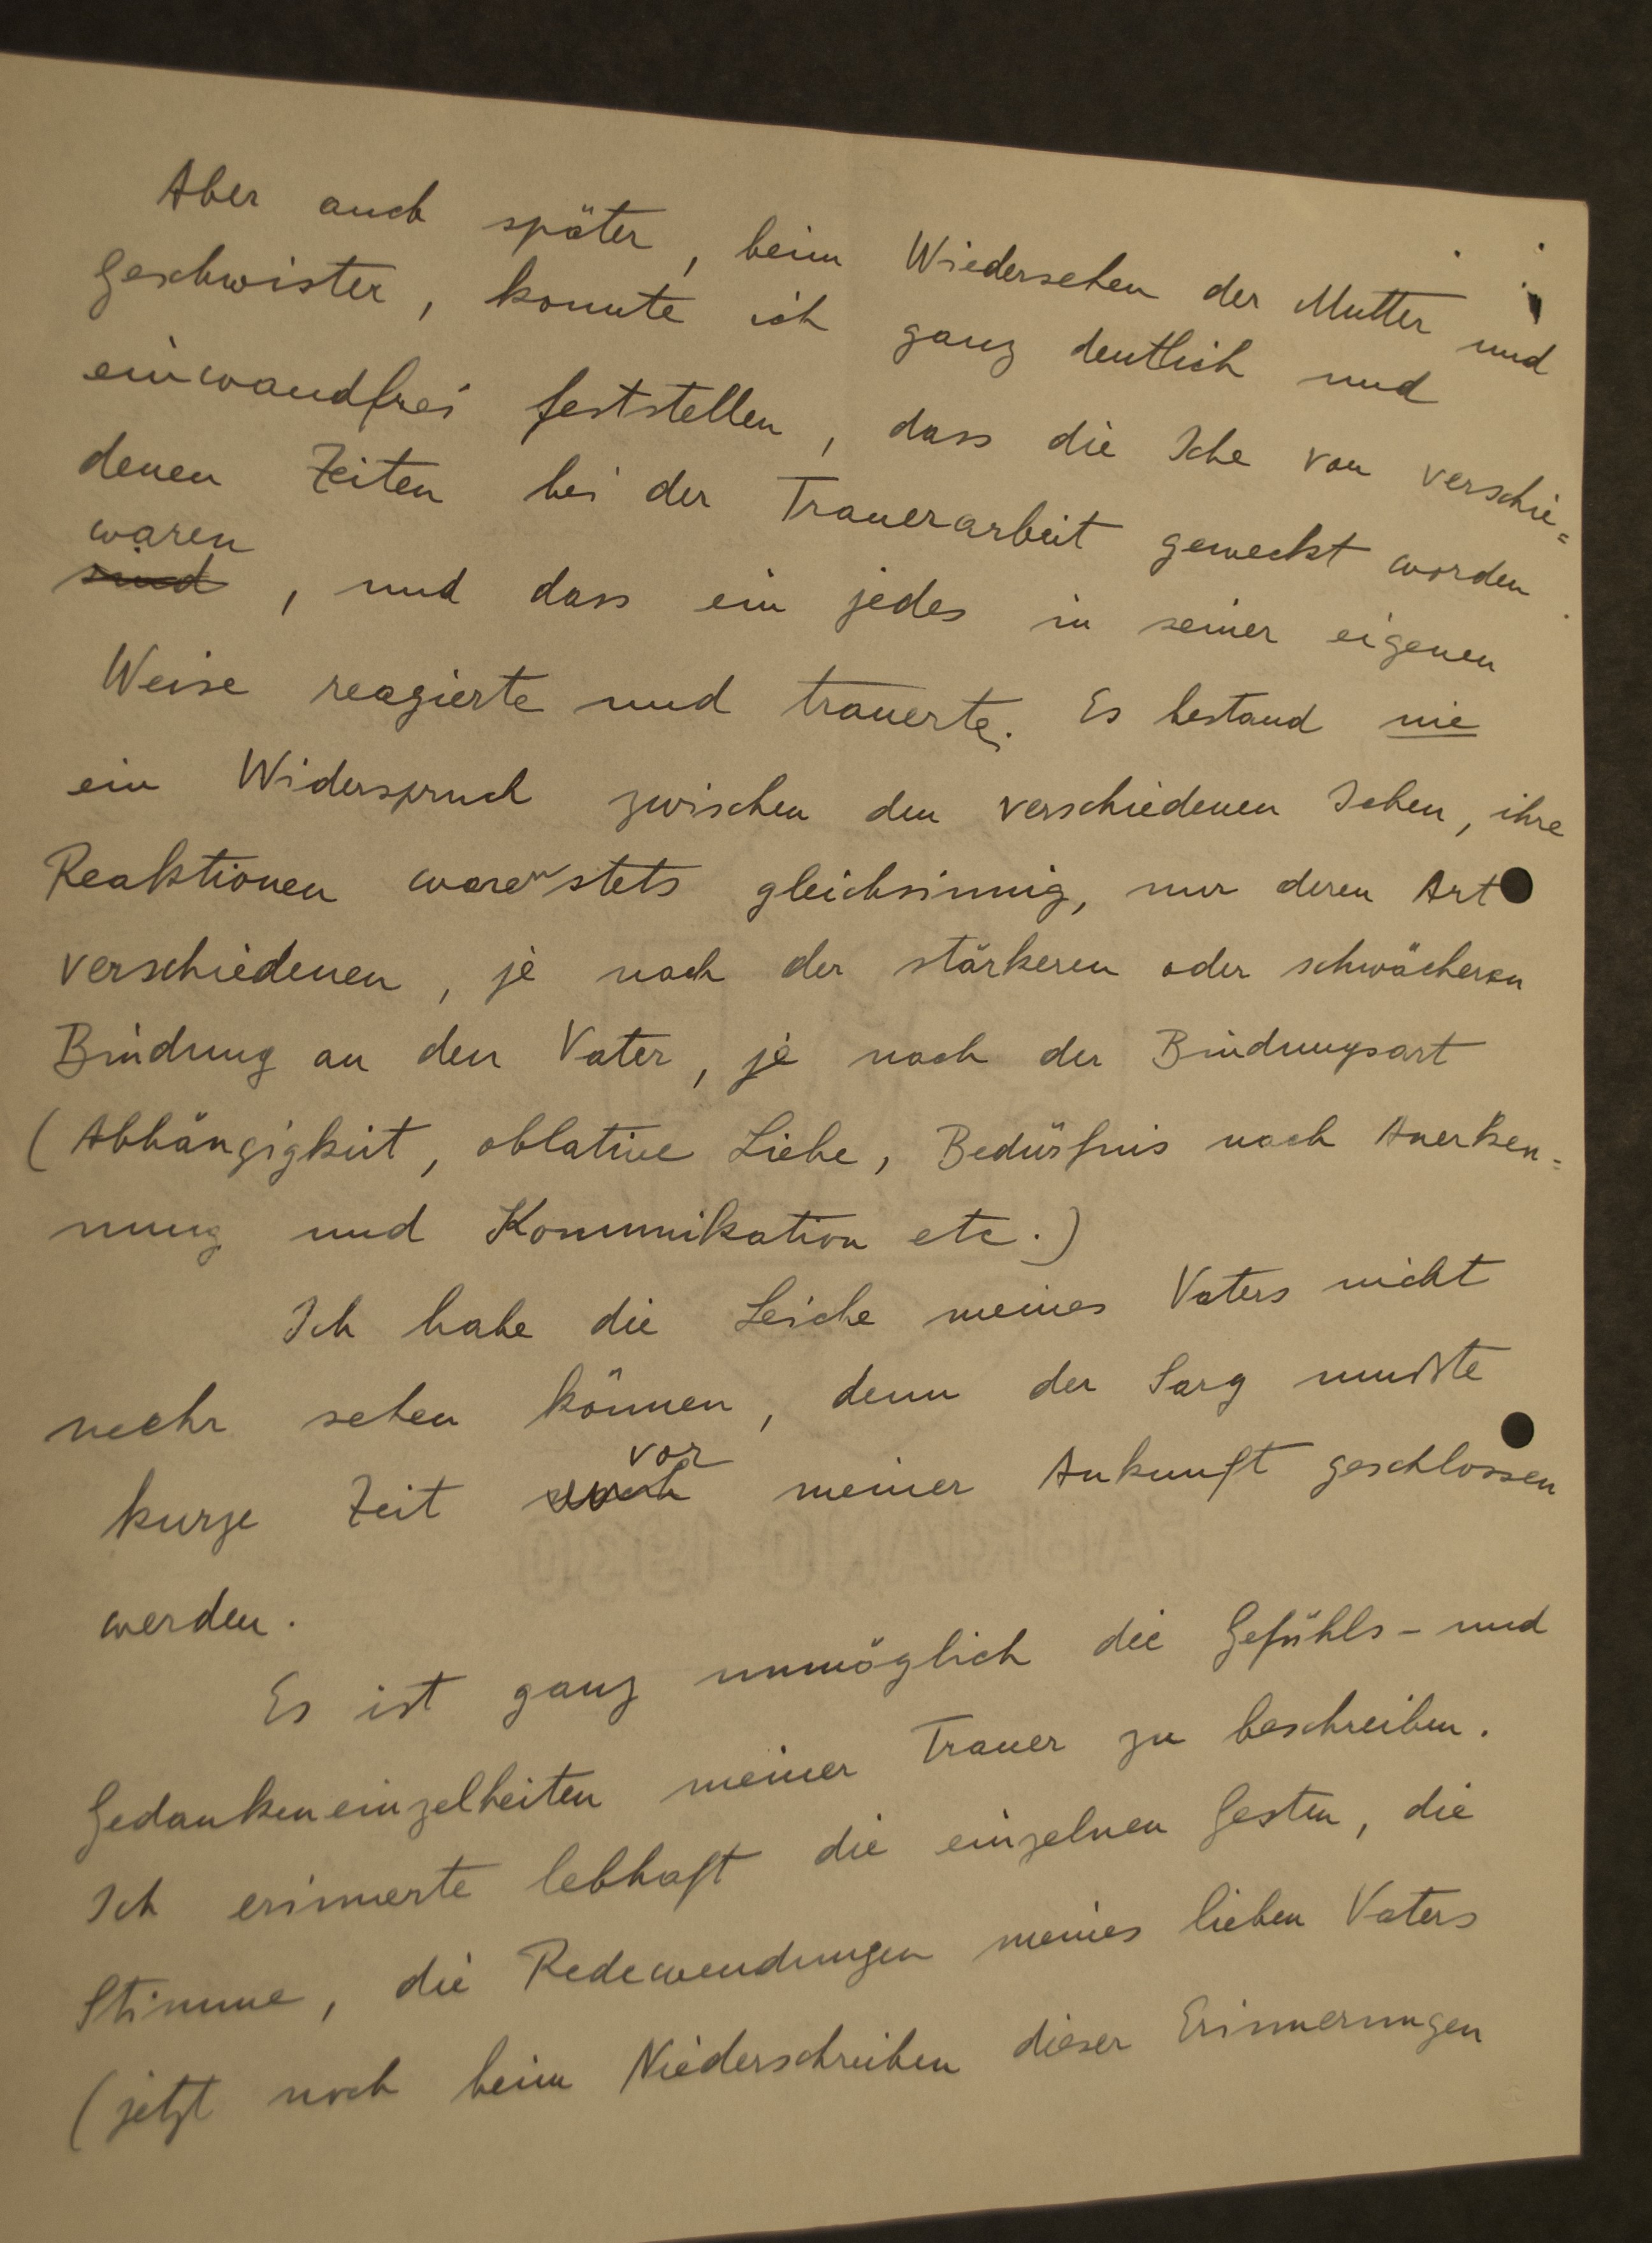 Aber auch später, beim Wiedersehen der Mutter und
Geschwister, konnte ich ganz deutlich und
einwandfrei feststellen, dass die Iche von verschie=
denen Zeiten bei der Trauerarbeit geweckt worden
waren
sind, und dass ein jedes in seiner eigenen
Weise reagierte und trauerte. Es bestand nie
ein Widerspruch zwischen den verschiedenen Ichen, ihre
Reaktionen waren stets gleichsinnig, nur deren Art
verschiedenen, je nach der stärkeren oder schwächeren
Bindung an den Vater, je nach der Bindungsart
(Abhängigkeit, oblative Liebe, Bedürfnis nach Anerken=
nung und Kommunikation etc.)
Ich habe die Leiche meines Vaters nicht
mehr sehen können, denn der Sarg mußte
vor
kurze Zeit meiner Ankunft geschlossen
werden.
Es ist ganz unmöglich die Gefühls- und
Gedankeneinzelheiten meiner Trauer zu beschreiben.
Ich erinnerte lebhaft die einzelnen Gesten, die
Stimme, die Redewendungen meines lieben Vaters
(jetzt noch beim Niederschreiben dieser Erinnerungen
FABRIANO 1930